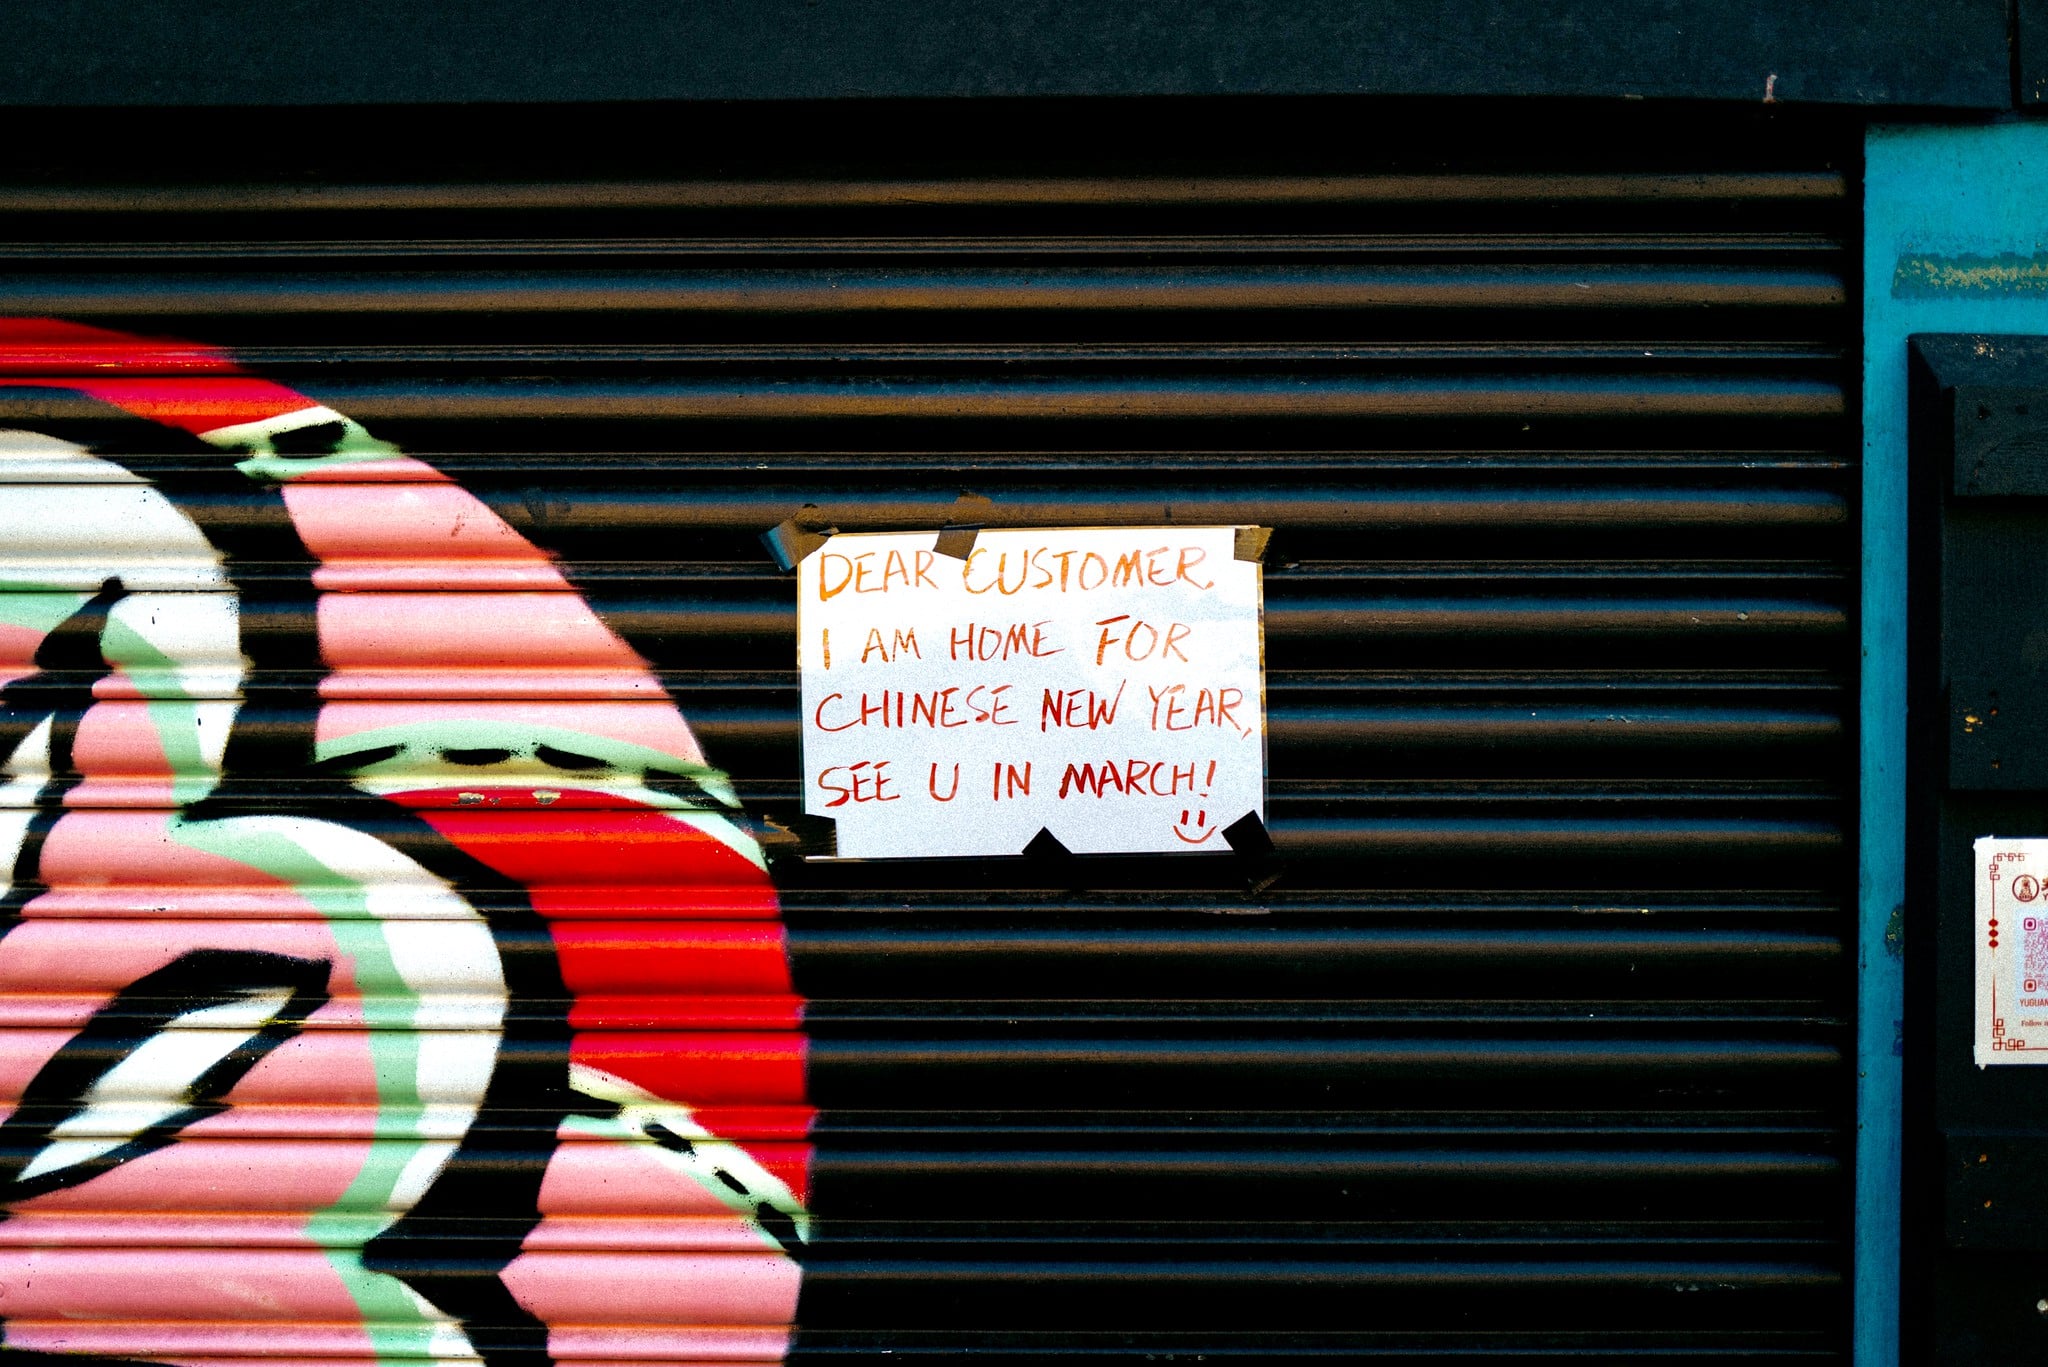 DEAR CUSTOMER.
I AM HOME FOR
CHINESE NEW YEAR,
SEE U IN MARCH!
Follow